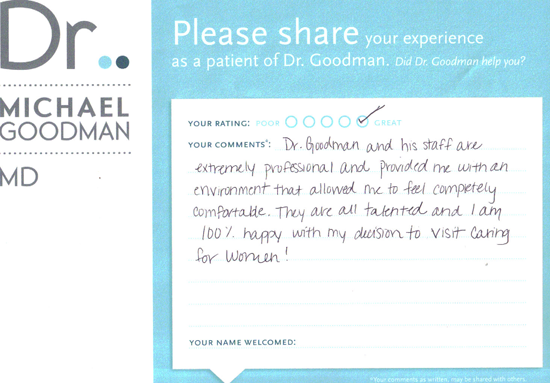 Dr.
MICHAEL
GOODMAN
MD
Please share your experience
as a patient of Dr. Goodman. Did Dr. Goodman help you?
YOUR RATING: POOR GREAT
YOUR COMMENTS*: Dr. Goodman and his staff are
extremely professional and provided me with an
environment that allowed me to feel completely
comfortable. They are all talented and I am
100% happy with my decision to visit Caring
for Women!
YOUR NAME WELCOMED:
*Your comments as written, may be shared with others.